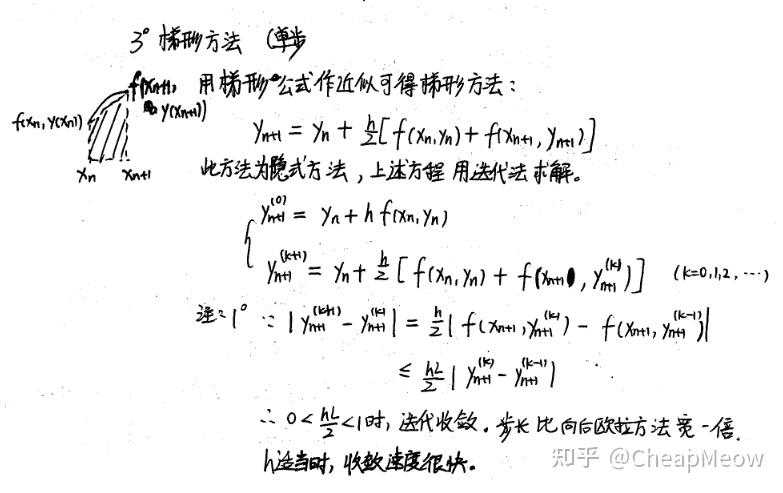 3° 梯形方法 (单步
f(xₙ₊₁, y(xₙ₊₁))
f(xₙ, y(xₙ))
xₙ xₙ₊₁
用梯形公式作近似可得梯形方法：
yₙ₊₁ = yₙ + h/2 [f(xₙ,yₙ) + f(xₙ₊₁, yₙ₊₁)]
此方法为隐式方法，上述方程用迭代法求解。
yₙ₊₁⁽⁰⁾ = yₙ + h f(xₙ,yₙ)
yₙ₊₁⁽ᵏ⁺¹⁾ = yₙ + h/2 [f(xₙ,yₙ) + f(xₙ₊₁, yₙ₊₁⁽ᵏ⁾)] (k=0,1,2,⋯)
注：1° ∵ |yₙ₊₁⁽ᵏ⁺¹⁾ - yₙ₊₁⁽ᵏ⁾| = h/2 |f(xₙ₊₁, yₙ₊₁⁽ᵏ⁾) - f(xₙ₊₁, yₙ₊₁⁽ᵏ⁻¹⁾)|
≤ hL/2 |yₙ₊₁⁽ᵏ⁾ - yₙ₊₁⁽ᵏ⁻¹⁾|
∴ 0 < hL/2 < 1时，迭代收敛．步长比向后欧拉方法宽一倍.
h适当时，收敛速度很快。
知乎 @CheapMeow